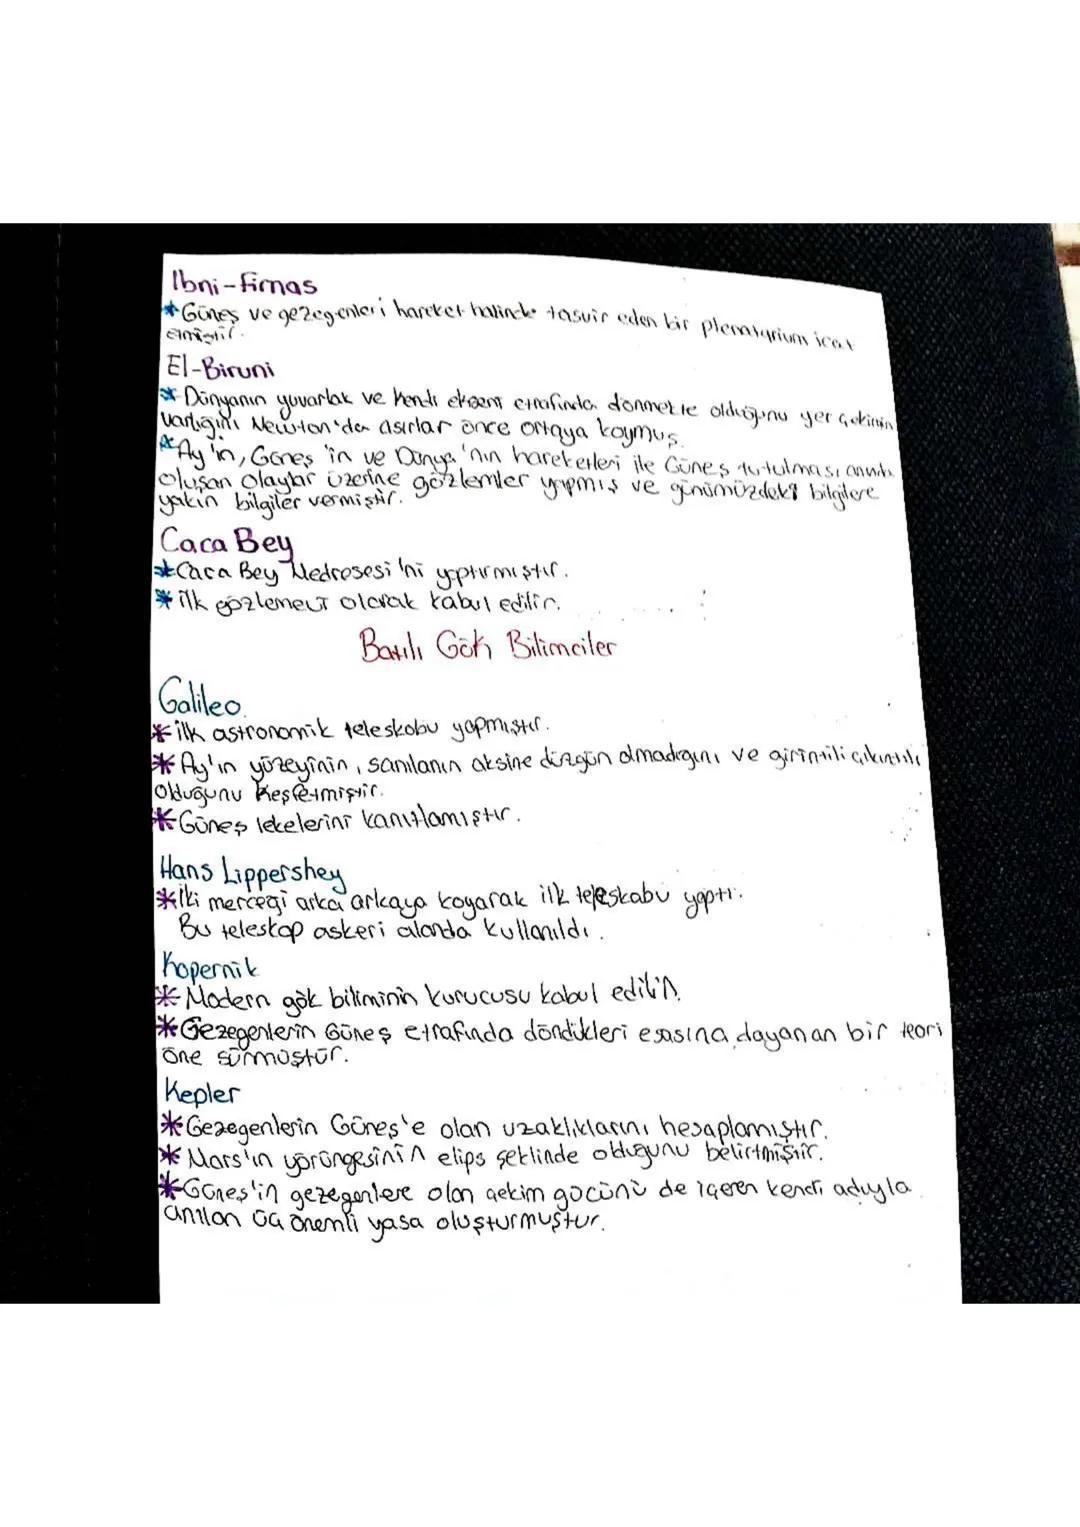 Ibni-Firnas
*Güneş ve gezegenleri hareket halinde tasvir eden bir plenatarium icat
etmiştir.
El-Biruni
*Dünyanın yuvarlak ve kendi ekseni etrafında dönmekte olduğunu yer çekiminin
varlığını Newton'dan asırlar önce ortaya koymuş.
*Ay'ın, Güneş'in ve Dünya'nın hareketleri ile Güneş tutulması anında
oluşan olaylar üzerine gözlemler yapmış ve günümüzdeki bilgilere
yakın bilgiler vermiştir.
Caca Bey
*Caca Bey Medresesi'ni yaptırmıştır.
*ilk gözlemevi olarak kabul edilir.
Batılı Gök Bilimciler
Galileo
*ilk astronomik teleskobu yapmıştır.
*Ay'ın yüzeyinin, sanılanın aksine düzgün olmadığını ve girintili çıkıntılı
olduğunu keşfetmiştir.
*Güneş lekelerini kanıtlamıştır.
Hans Lippershey
*İki merceği arka arkaya koyarak ilk teleskabu yaptı.
Bu teleskop askeri alanda kullanıldı.
Kopernik
*Modern gök biliminin kurucusu kabul edilir.
*Gezegenlerin Güneş etrafında döndükleri esasına dayanan bir teori
öne sürmüştür.
Kepler
*Gezegenlerin Güneş'e olan uzaklıklarını hesaplamıştır.
*Mars'ın yörüngesinin elips şeklinde olduğunu belirtmiştir.
*Güneş'in gezegenlere olan çekim gücünü de içeren kendi adıyla
anılan üç önemli yasa oluşturmuştur.